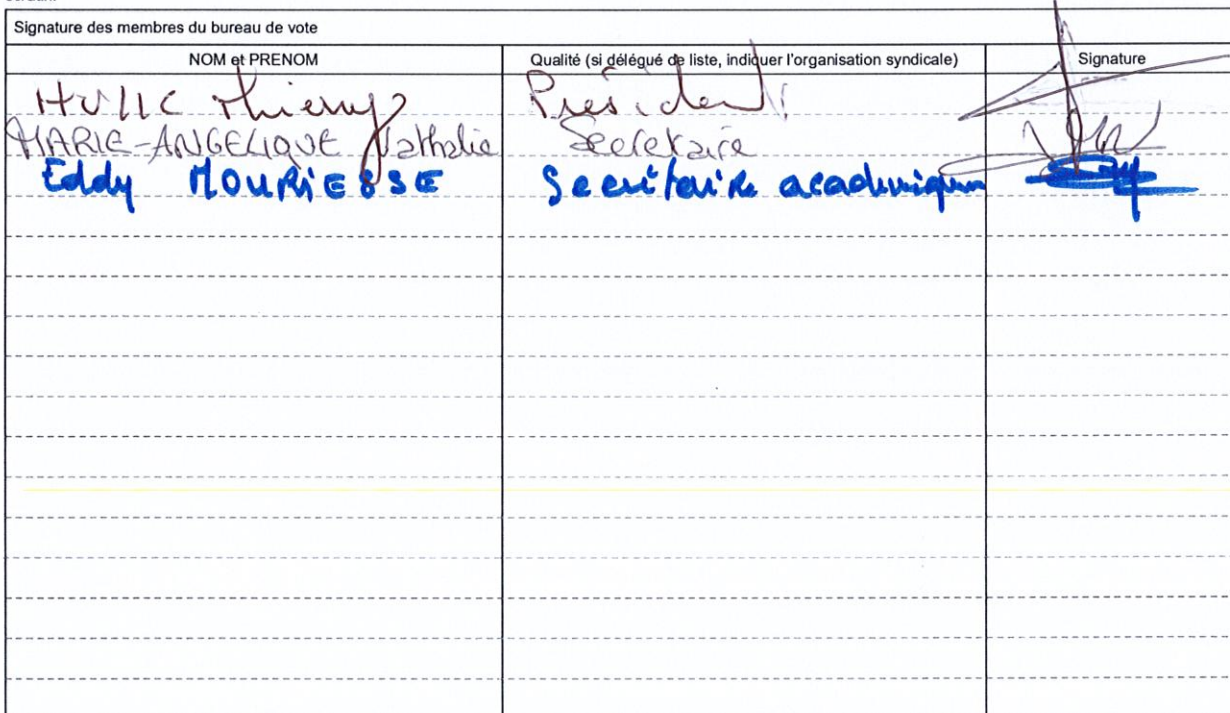 Signature des membres du bureau de vote
NOM et PRENOM Qualité (si délégué de liste, indiquer l'organisation syndicale) Signature
Thierry Président
MARIE-ANGELIQUE Nathalie Secrétaire
Eddy MOURIESSE Secrétaire académique